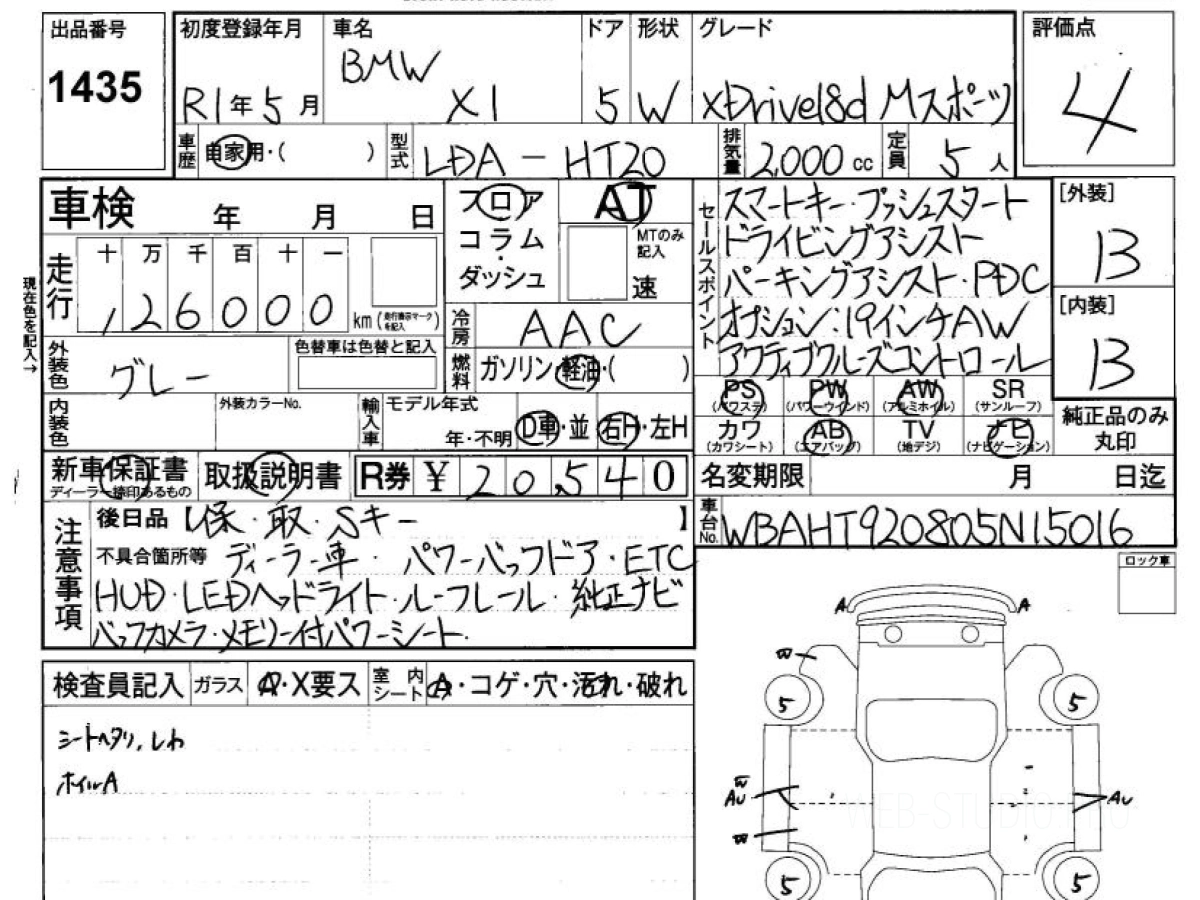 出品番号
1435
初度登録年月
R1年5月
車名
BMW
X1
ドア
5
形状
W
グレード
xDrive18d Mスポーツ
評価点
4
車歴
自家用・( )
型式
LDA-HT20
排気量
2,000 cc
定員
5人
車検 年 月 日
フロア
コラム
・
ダッシュ
AT
MTのみ
記入
速
セールスポイント
スマートキー・プッシュスタート
ドライビングアシスト
パーキングアシスト・PDC
オプション:19インチAW
アクティブクルーズコントロール
[外装]
B
[内装]
B
現在色を記入→
走行
十 万 千 百 十 一
126000
km(走行表示マークを記入)
冷房
AAC
外装色
グレー
色替車は色替と記入
燃料
ガソリン・軽油・( )
内装色
外装カラーNo.
輸入車
モデル年式
年・不明
D車・並
右H・左H
PS
(パワステ)
PW
(パワーウインド)
AW
(アルミホイル)
SR
(サンルーフ)
カワ
(カワシート)
AB
(エアバッグ)
TV
(地デジ)
ナビ
(ナビゲーション)
純正品のみ
丸印
新車保証書
ディーラー捺印あるもの
取扱説明書
R券 ¥20,540
名変期限 月 日迄
注意事項
後日品【保・取・Sキー 】
不具合箇所等 ディーラー車・パワーバックドア・ETC
HUD・LEDヘッドライト・ルーフレール・純正ナビ
バックカメラ・メモリー付パワーシート・
車台No.
WBAHT920805N15016
ロック車
検査員記入
ガラス
A・X要ス
室内
シート
A・コゲ・穴・汚れ・破れ
シートヘタリ、しわ
ホイルA
A
A
W
5
5
W
AU
AU
W
5
5
WEB-STUDIO.PRO